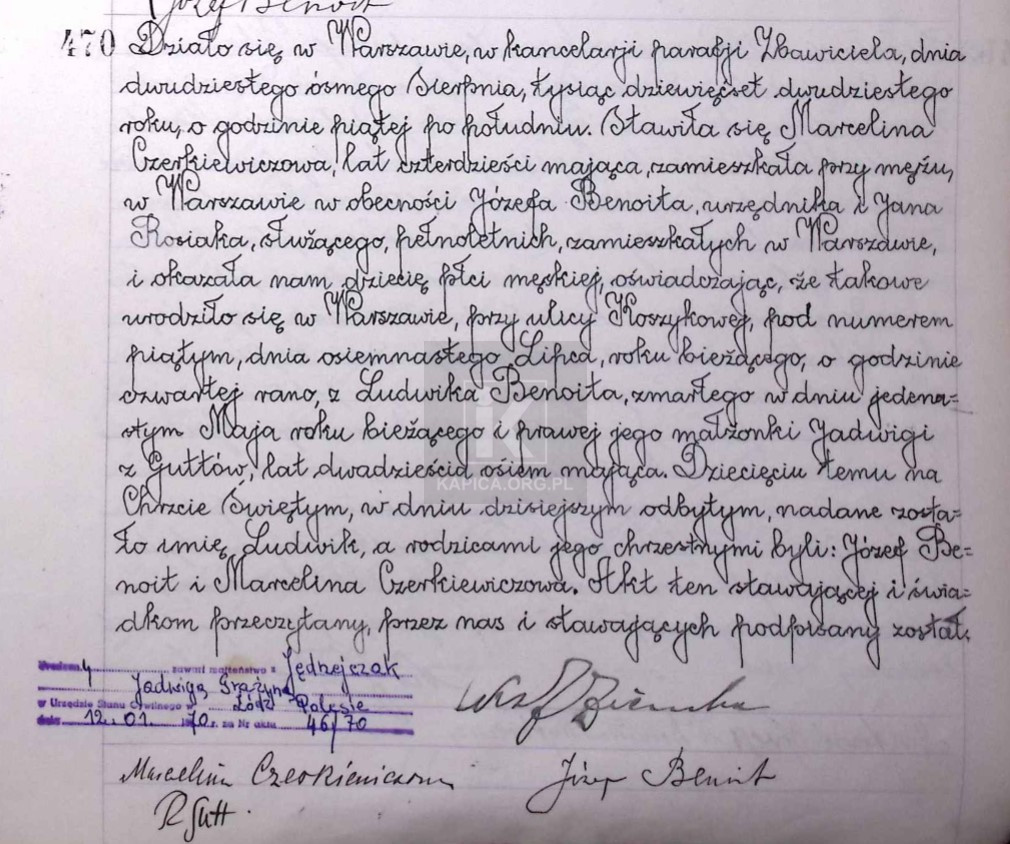 Józef Benoit
470 Działo się w Warszawie, w kancelarji parafji Zbawiciela, dnia
dwudziestego ósmego Sierpnia, tysiąc dziewięćset dwudziestego
roku, o godzinie piątej po południu. Stawiła się Marcelina
Czerkiewiczowa, lat czterdzieści mająca, zamieszkała przy mężu,
w Warszawie w obecności Józefa Benoita, urzędnika i Jana
Rosiaka, służącego, pełnoletnich, zamieszkałych w Warszawie,
i okazała nam dziecię płci męskiej, oświadczając, że takowe
urodziło się w Warszawie, przy ulicy Koszykowej, pod numerem
piątym, dnia osiemnastego Lipca, roku bieżącego, o godzinie
czwartej rano, z Ludwika Benoita, zmarłego w dniu jedena=
stym Maja roku bieżącego i prawej jego małżonki Jadwigi
z Guttów, lat dwadzieścia osiem mająca. Dziecięciu temu na
KAPICA.ORG.PL
Chrzcie Świętym, w dniu dzisiejszym odbytym, nadane zosta=
ło imię Ludwik, a rodzicami jego chrzestnymi byli: Józef Be=
noit i Marcelina Czerkiewiczowa. Akt ten stawającej i świa=
dkom przeczytany, przez nas i stawających podpisany został.
4 zawarł małżeństwo z Jędrzejczak
Jadwigą Grażyną
w Urzędzie Stanu Cywilnego w Łódź Polesie
dnia 12.01. 1970 r. za Nr aktu 46/70
Marcelina Czerkiewiczowa Józef Benoit
R Gutt.